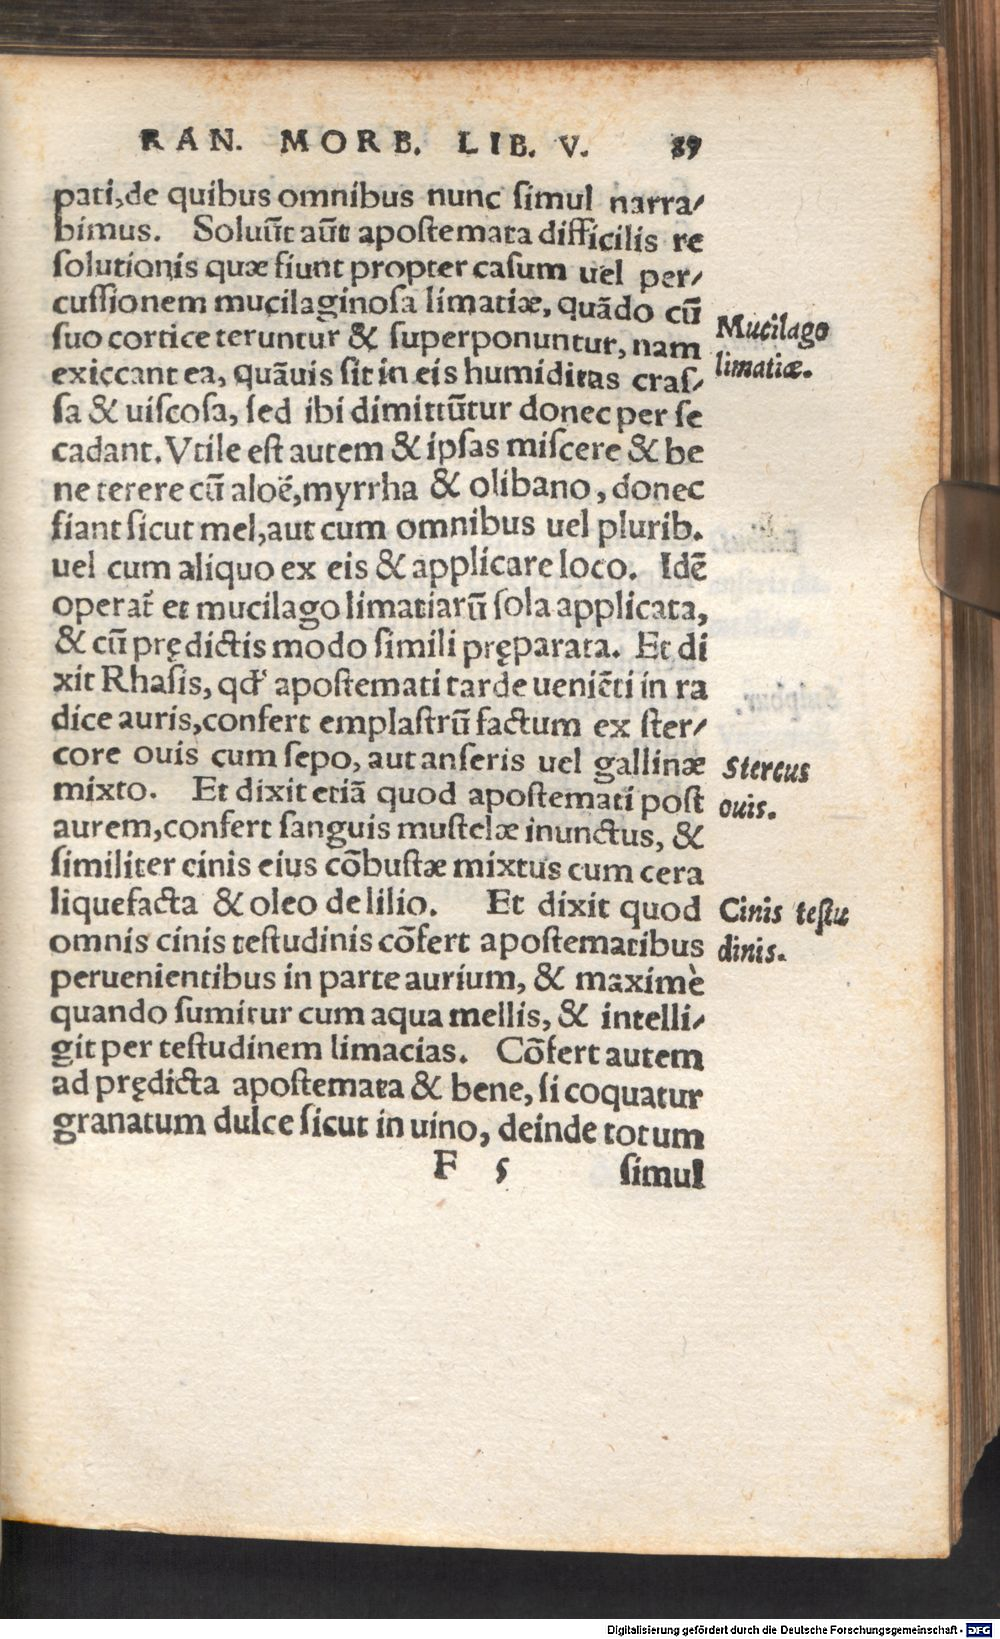 RAN. MORB. LIB. V. 89
pati, de quibus omnibus nunc simul narra-
bimus. Soluūt aūt apostemata difficilis re
solutionis quæ fiunt propter casum uel per-
cussionem mucilaginosa limatiæ, quādo cū
suo cortice teruntur & superponuntur, nam
exiccant ea, quāuis sit in eis humiditas cras-
sa & uiscosa, sed ibi dimittūtur donec per se
cadant. Vtile est autem & ipsas miscere & be
ne terere cū aloë, myrrha & olibano, donec
fiant sicut mel, aut cum omnibus uel plurib.
uel cum aliquo ex eis & applicare loco. Idē
operat̄ et mucilago limatiarū sola applicata,
& cū prędictis modo simili pręparata. Et di
xit Rhasis, qđ apostemati tarde ueniēti in ra
dice auris, confert emplastrū factum ex ster-
core ouis cum sepo, aut anseris uel gallinæ
mixto. Et dixit etiā quod apostemati post
aurem, confert sanguis mustelæ inunctus, &
similiter cinis eius cōbustæ mixtus cum cera
liquefacta & oleo de lilio. Et dixit quod
omnis cinis testudinis cōfert apostematibus
peruenientibus in parte aurium, & maximè
quando sumitur cum aqua mellis, & intelli-
git per testudinem limacias. Cōfert autem
ad prędicta apostemata & bene, si coquatur
granatum dulce sicut in uino, deinde totum
F 5 simul
Mucilago
limatiæ.
Stercus
ouis.
Cinis testu
dinis.
Digitalisierung gefördert durch die Deutsche Forschungsgemeinschaft - DFG